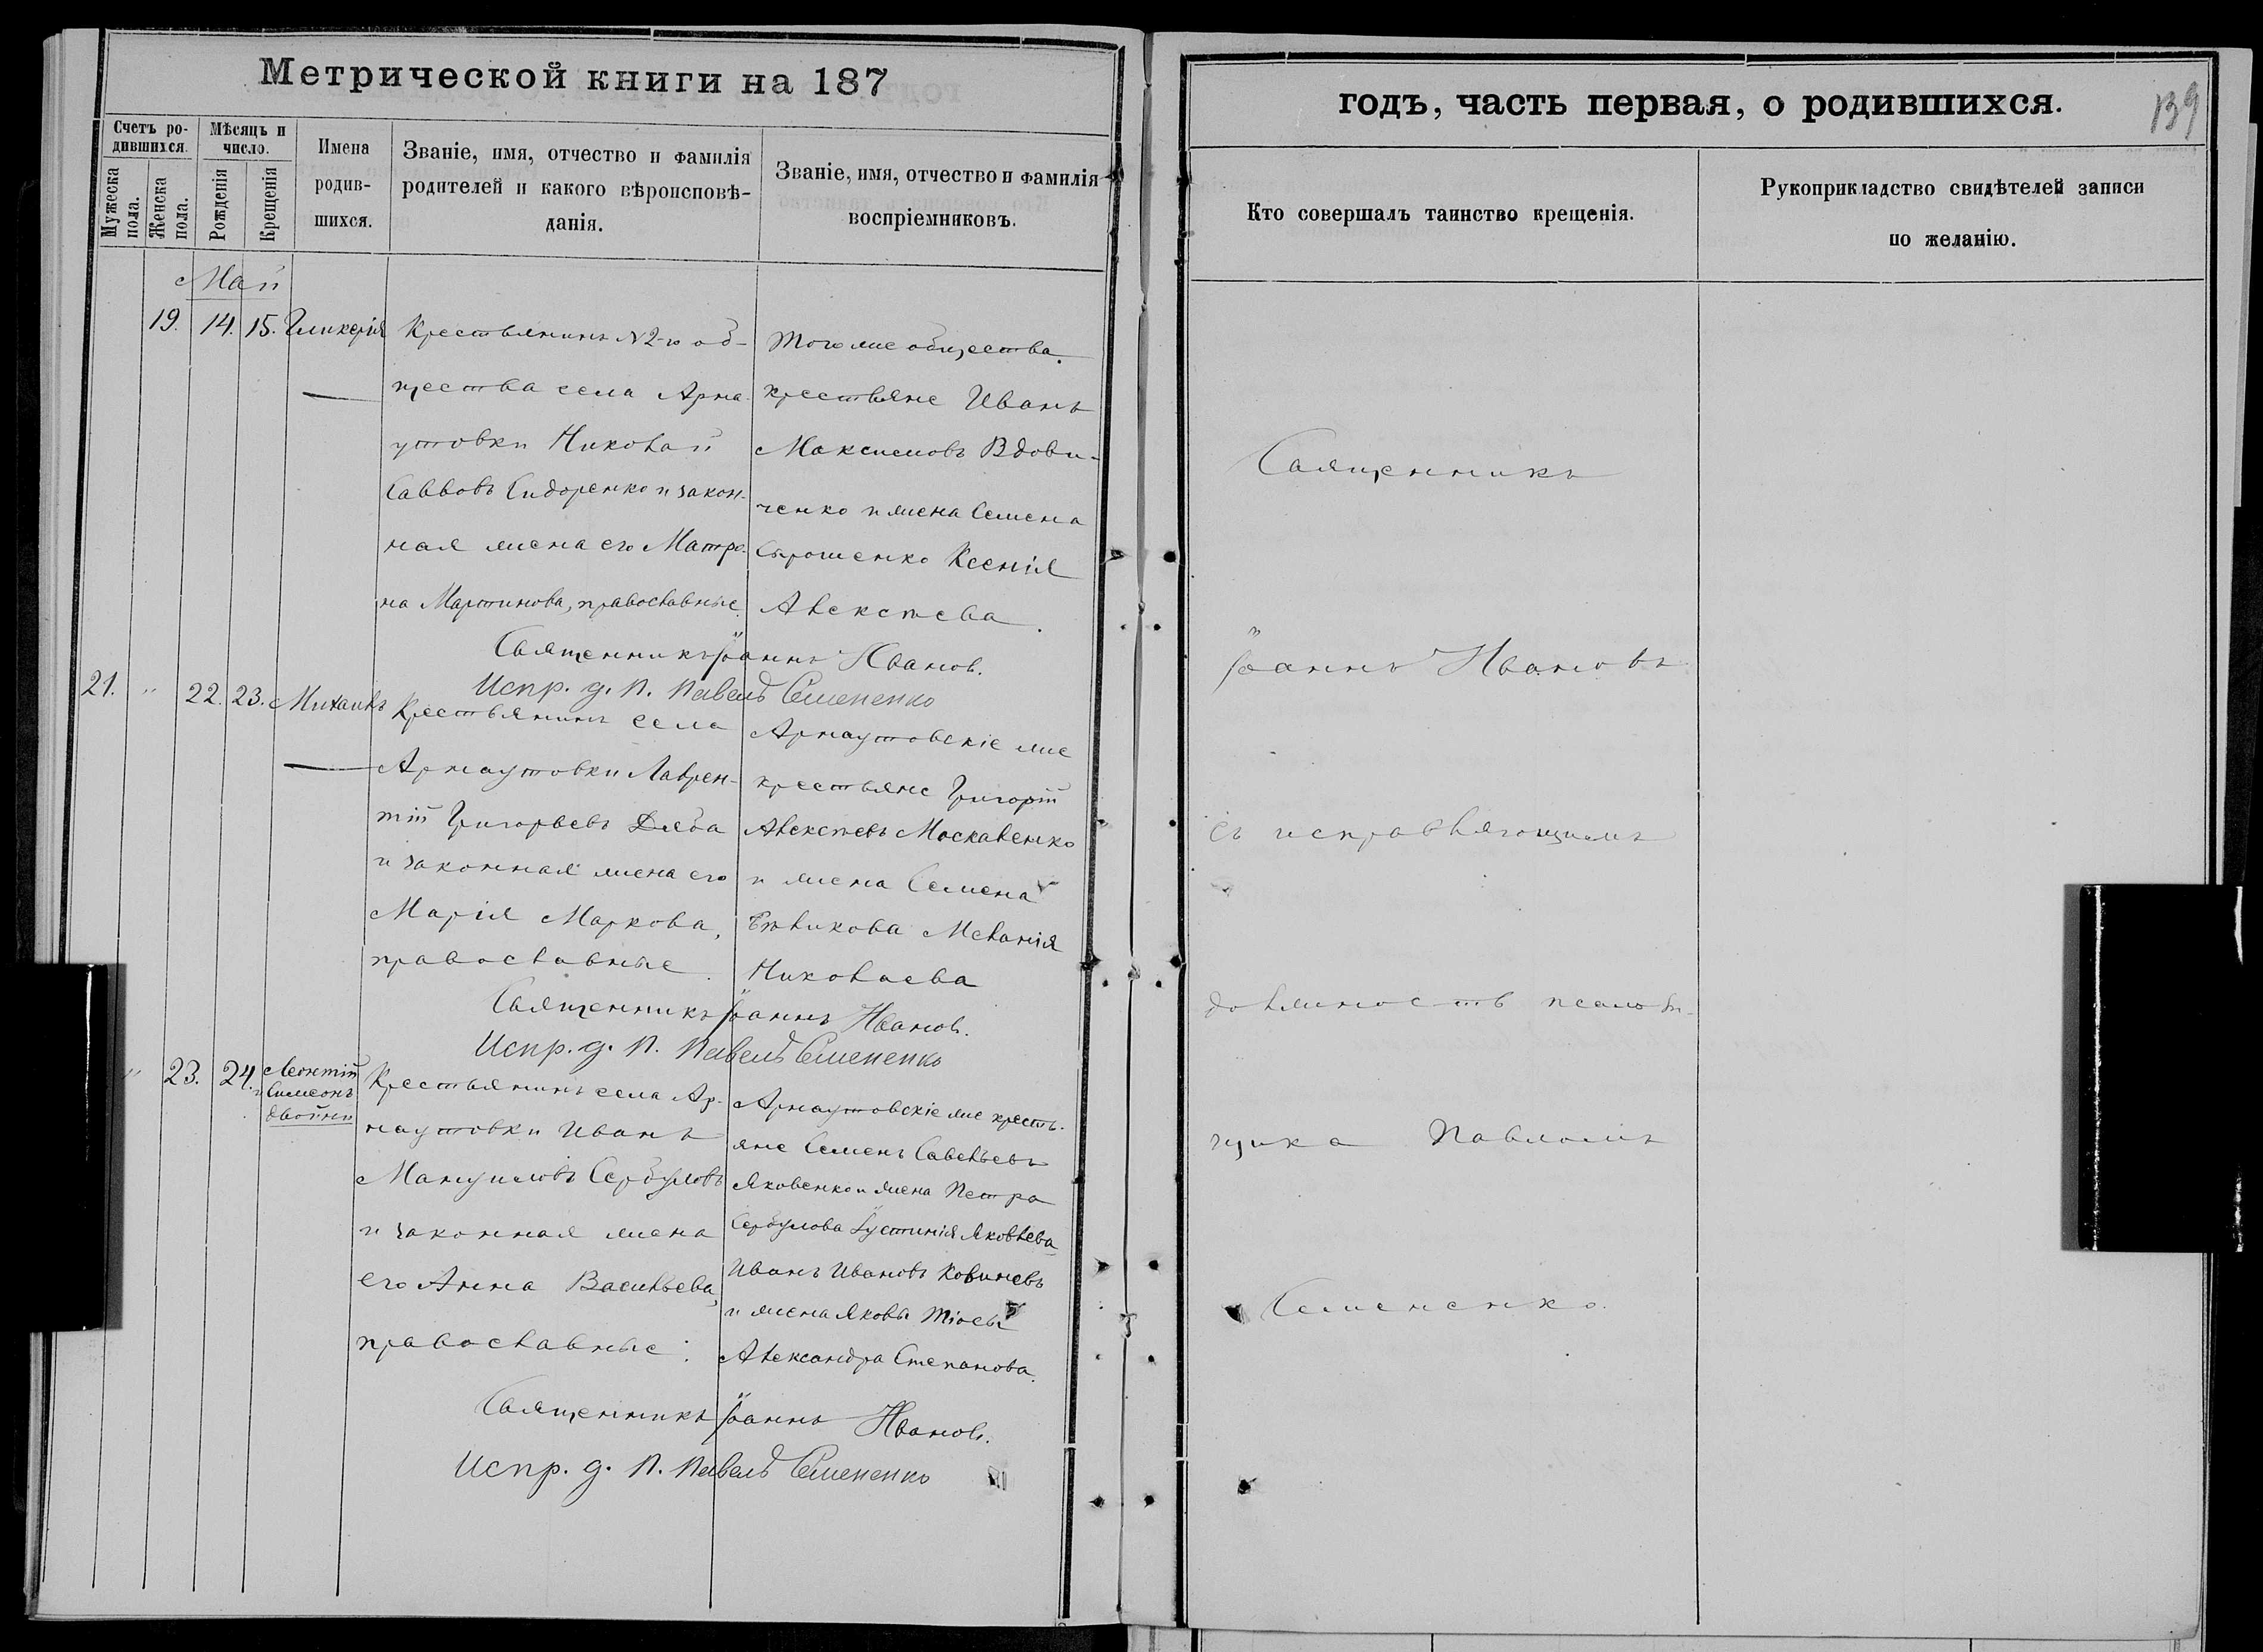 Метрической книги на 187
Счетъ ро-
дившихся.
Мужеска
пола.
Женска
пола.
Мѣсяцъ и
число.
Рожденія
Крещенія
Имена
родив-
шихся.
Званіе, имя, отчество и фамилія
родителей и какого вѣроисповѣ-
данія.
Званіе, имя, отчество и фамилія
воспріемниковъ.
Май
19. 14. 15. Гликерія
Крестьянинъ N2-го об-
щества села Арна-
утовки Николай
Саввовъ Сидоренко и закон-
ная жена его Матро-
на Мартинова, православные.
Того же общества
крестьяне Иванъ
Максимовъ Вдови-
ченко и жена Семена
Ксенія
Алексѣева.
Священникъ Іоаннъ Ивановъ.
Испр. д. П. Павелъ Семененко
21. " 22. 23. Михаилъ
Крестьянинъ села
Арнаутовки Лаврен-
тій Григорьевъ Дзюба
и законная жена его
Марія Маркова,
православные.
Арнаутовскіе же
крестьяне Григорій
Алексѣевъ Москаленко
и жена Семена
Меланія
Николаева
Священникъ Іоаннъ Ивановъ.
Испр. д. П. Павелъ Семененко
" 23. 24. Леонтій
и Симеонъ
двойни
Крестьянинъ села Ар-
наутовки Иванъ
Мануиловъ Сербуловъ
и законная жена
его Анна Васильева,
православные.
Арнаутовскіе же кресть-
яне Семенъ Савельевъ
Яковенко и жена Петра
Сербулова Іустинія Яковлева
Иванъ Ивановъ
и жена Якова
Александра Степанова.
Священникъ Іоаннъ Ивановъ.
Испр. д. П. Павелъ Семененко
годъ, часть первая, о родившихся.
139
Кто совершалъ таинство крещенія.
Рукоприкладство свидѣтелей записи
по желанію.
Священникъ
Іоаннъ Ивановъ
съ исправляющимъ
должность псалом-
щика Павломъ
Семененко.